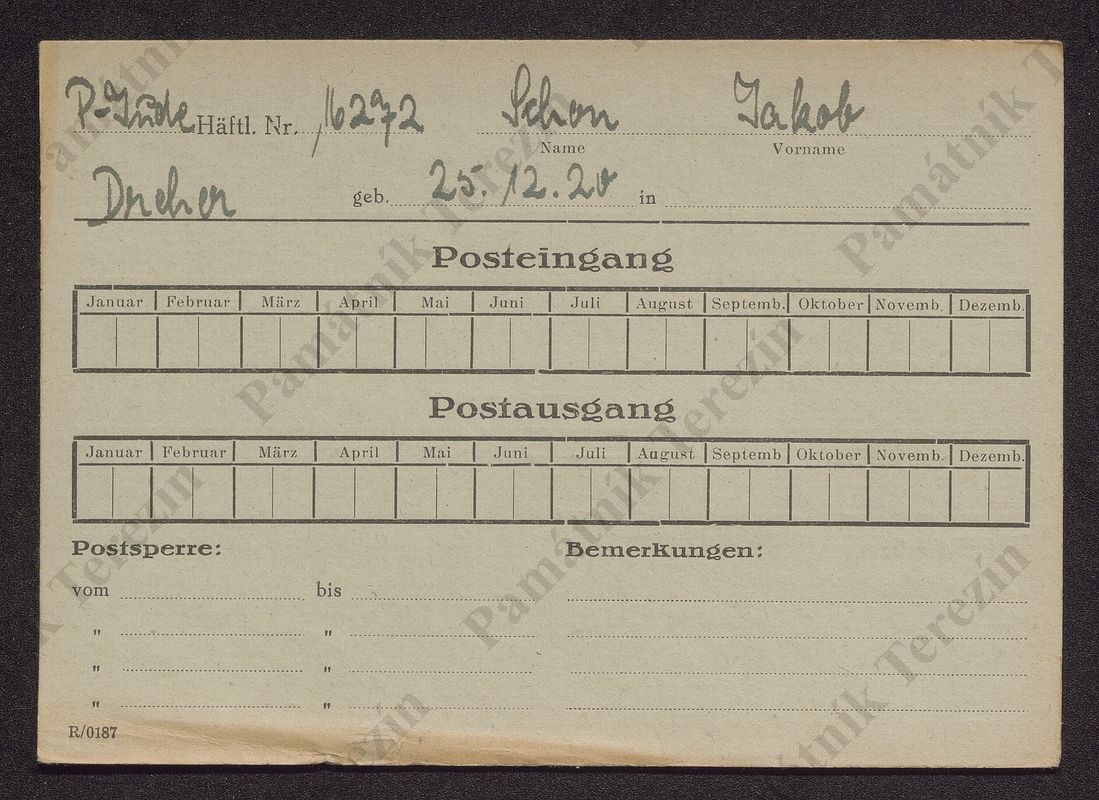 P-Jude Häftl. Nr. 16272 Schon Jakob
Name Vorname
Dreher geb. 25. 12. 20 in
Posteingang
Januar Februar März April Mai Juni Juli August Septemb. Oktober Novemb. Dezemb.
Postausgang
Januar Februar März April Mai Juni Juli August Septemb Oktober Novemb. Dezemb.
Postsperre: Bemerkungen:
vom bis
" "
" "
" "
R/0187
Památník Terezín